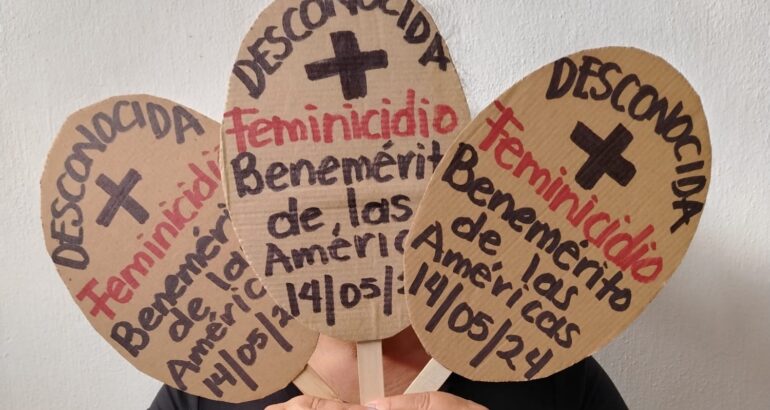 DESCONOCIDA
Feminicidio
Benemérito
de las
América
14/05/2
DESCONOCIDA
Feminicidio
Benemérito
de las
Améric
14/05/
DESCONOCIDA
Feminicidio
Benemérito
de las
Américas
14/05/24